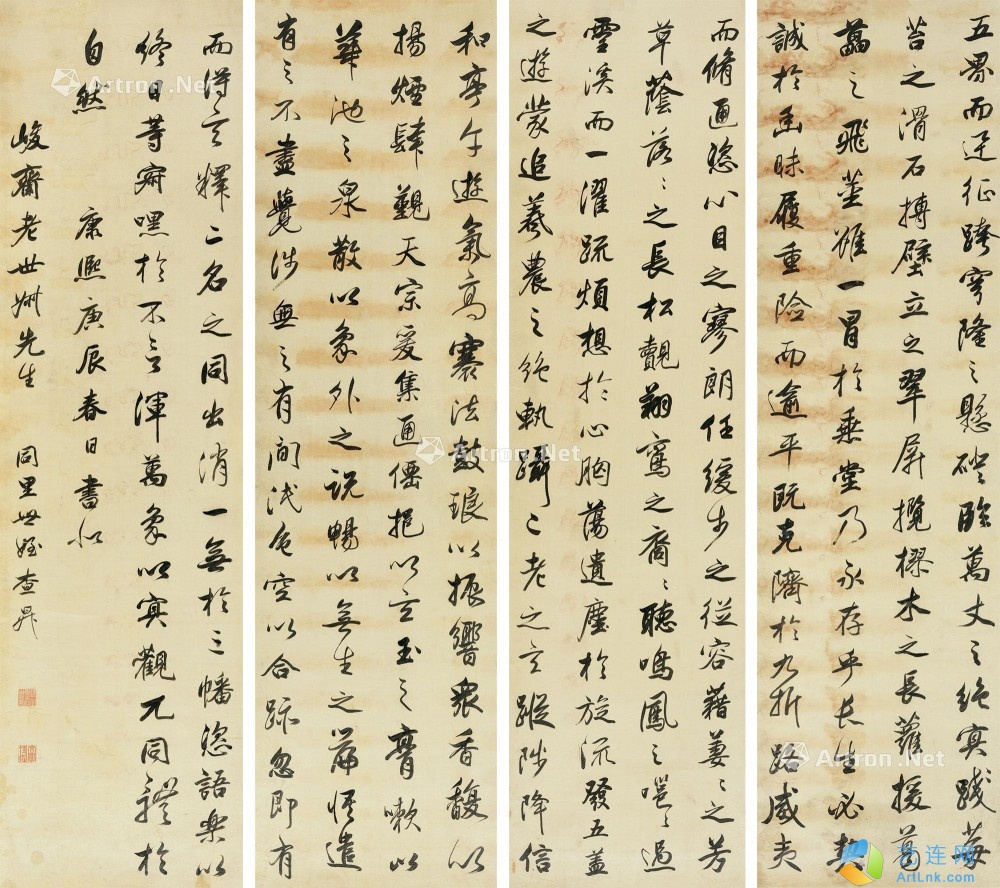 五界而迅征跨穹隆之懸磴臨萬丈之絕冥踐莓
苔之滑石搏壁立之翠屏攬樛木之長蘿援葛
藟之飛莖雖一冒於垂堂乃永存乎長生必契
誠於幽昧履重險而逾平既克隮於九折路威夷
而脩通恣心目之寥朗任緩步之從容藉萋〻之芳
草蔭落〻之長松覿翔鸞之裔〻聽鳴鳳之嗈〻過
靈溪而一濯疏煩想於心胸蕩遺塵於旋流發五蓋
之遊蒙追羲農之絕軌躡二老之玄蹤陟降信
和亭午遊氣高褰法鼓琅以振響眾香馥以
揚煙肆覲天宗爰集通僊挹以玄玉之膏嗽以
華池之泉散以象外之說暢以無生之篇悟遣
有之不盡覺涉無之有間泯色空以合跡忽即有
而得玄釋二名之同出消一無於三幡恣語樂以
終日等寂嘿於不言渾萬象以冥觀兀同體於
自然 康熙庚辰春日書似
峻齋老世先生 同里世姪查昇
Artron.Net
Artron.Net
Artron.Net
Artron.Net
芸连网
ArtLnk.com